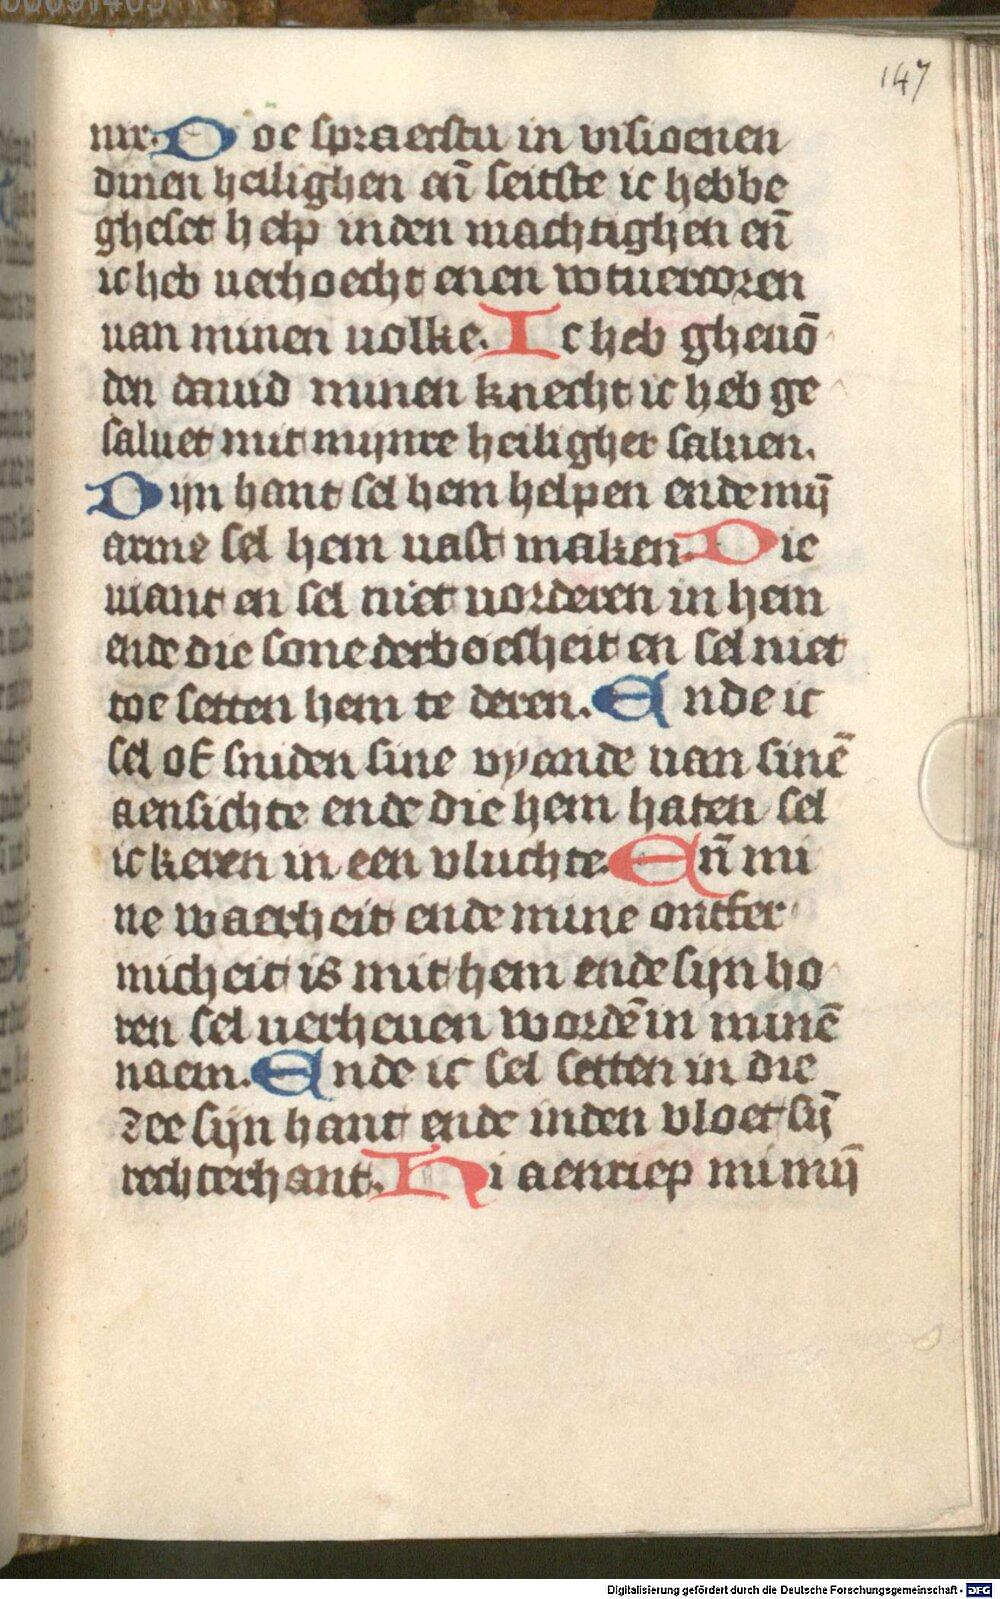 147
nir. Doe spraecstu in visioenen
dinen heilighen eñ seitste ic hebbe
gheset help inden machtighen eñ
ic heb verhoecht enen wtuercoren
uan minen uolke. Ic heb gheuō
den dauid minen knecht ic heb ge
saluet mit mijnre heiligher saluen.
Dijn hant sel hem helpen ende mij̄
arme sel hem uast maken. Die
uiant en sel niet uorderen in hem
ende die sone der boesheit en sel niet
toe setten hem te deren. Ende ic
sel of sniden sine vyande uan sinē
aensichte ende die hem haten sel
ic keren in een vluchte. Eñ mi
ne waerheit ende mine ontfer
micheit is mit hem ende sijn ho
ren sel uerheuen wordē in minē
naem. Ende ic sel setten in die
zee sijn hant ende inden vloet sij̄
rechterhant. Hi aenriep mi mij̄
Digitalisierung gefördert durch die Deutsche Forschungsgemeinschaft - DFG